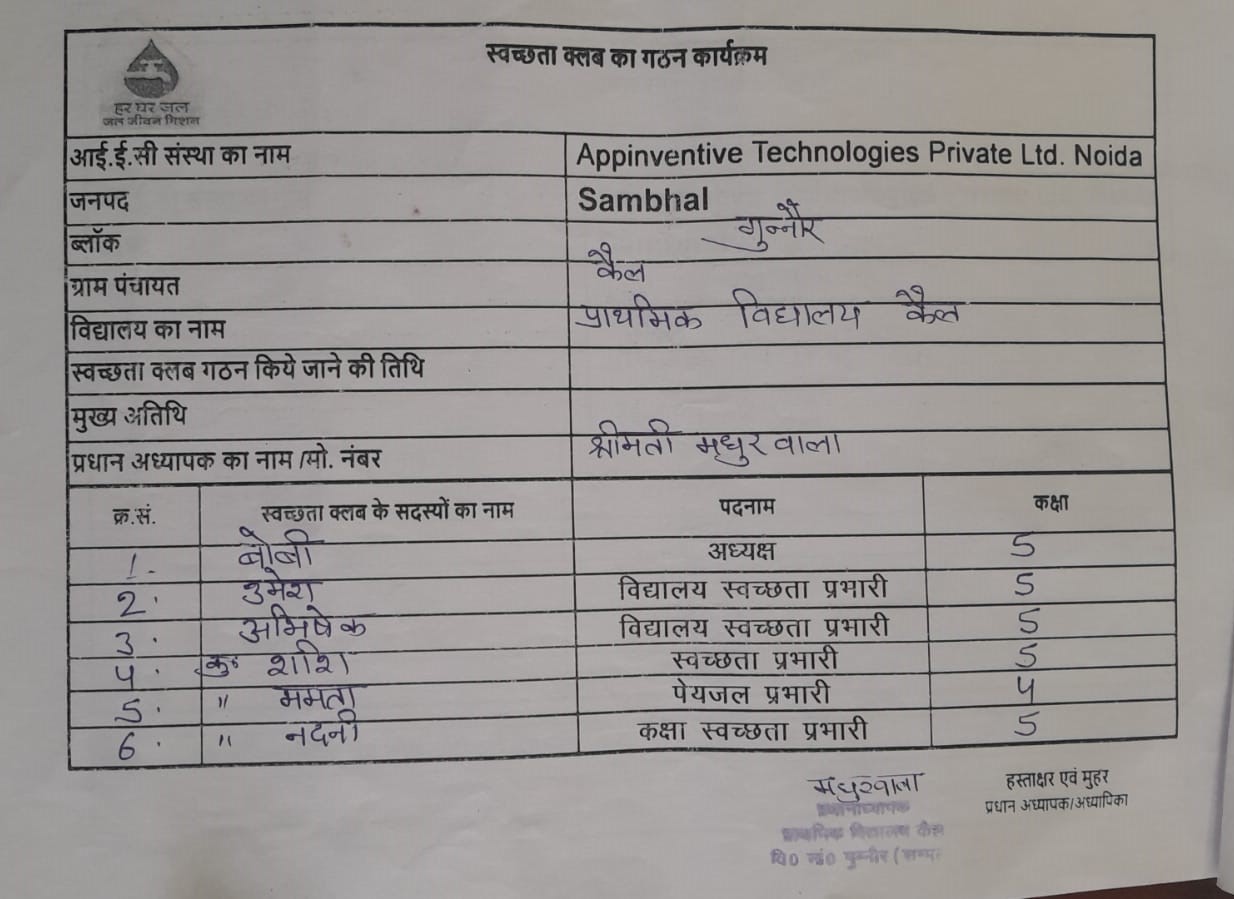 स्वच्छता क्लब का गठन कार्यक्रम
हर घर जल
जल जीवन मिशन
आई.ई.सी संस्था का नाम Appinventive Technologies Private Ltd. Noida
जनपद Sambhal
ब्लॉक गुन्नौर
ग्राम पंचायत कैल
विद्यालय का नाम प्राथमिक विद्यालय कैल
स्वच्छता क्लब गठन किये जाने की तिथि
मुख्य अतिथि
प्रधान अध्यापक का नाम /मो. नंबर श्रीमती मधुर वाला
क्र.सं. स्वच्छता क्लब के सदस्यों का नाम पदनाम कक्षा
1. बोबी अध्यक्ष 5
2. उमेश विद्यालय स्वच्छता प्रभारी 5
3. अभिषेक विद्यालय स्वच्छता प्रभारी 5
4. कु॰ शशि स्वच्छता प्रभारी 5
5. " ममता पेयजल प्रभारी 4
6. " नदनी कक्षा स्वच्छता प्रभारी 5
मधुरवाला हस्ताक्षर एवं मुहर
प्रधान अध्यापक/अध्यापिका
प्रधानाध्यापक
प्राथमिक विद्यालय कैल
वि0 गुन्नौर